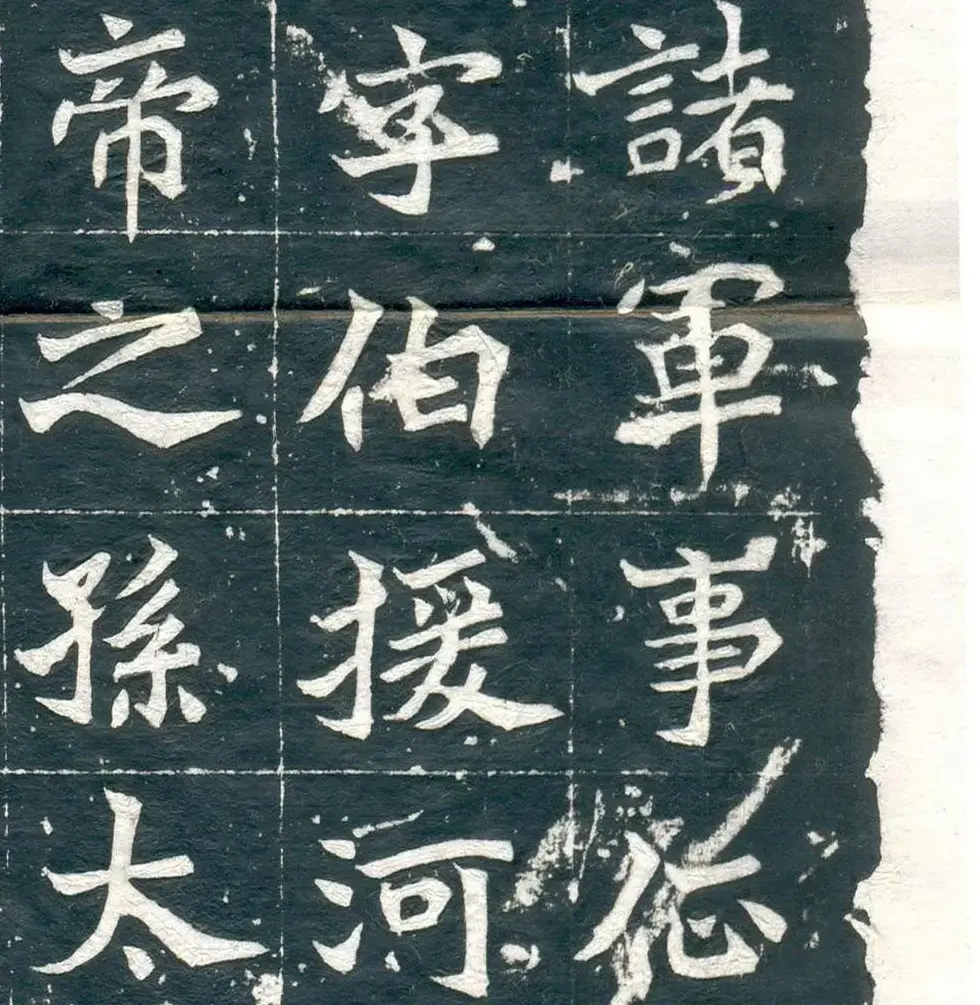 諸軍事征
字伯援河
帝之孫太